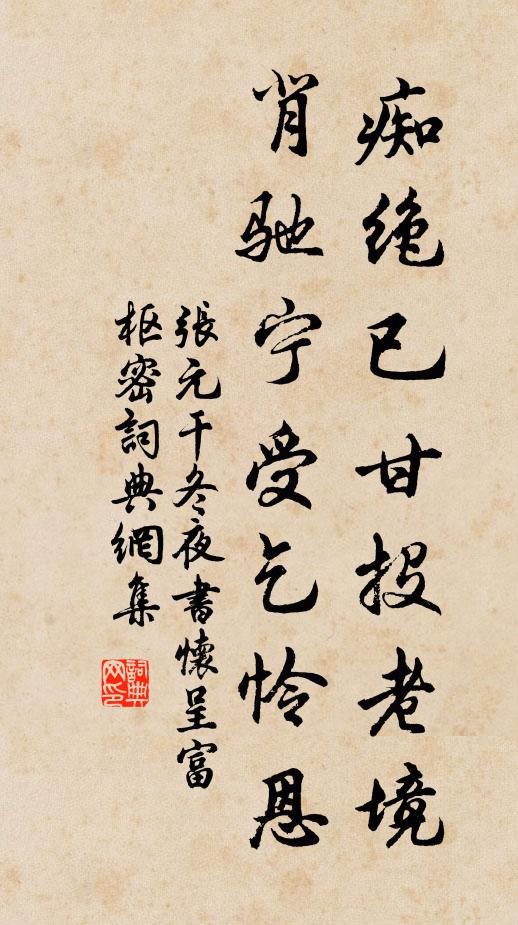 痴绝已甘投老境
肖驰宁受乞怜恩
張元干冬夜書懷呈富
枢密詞典網集
詞典网印